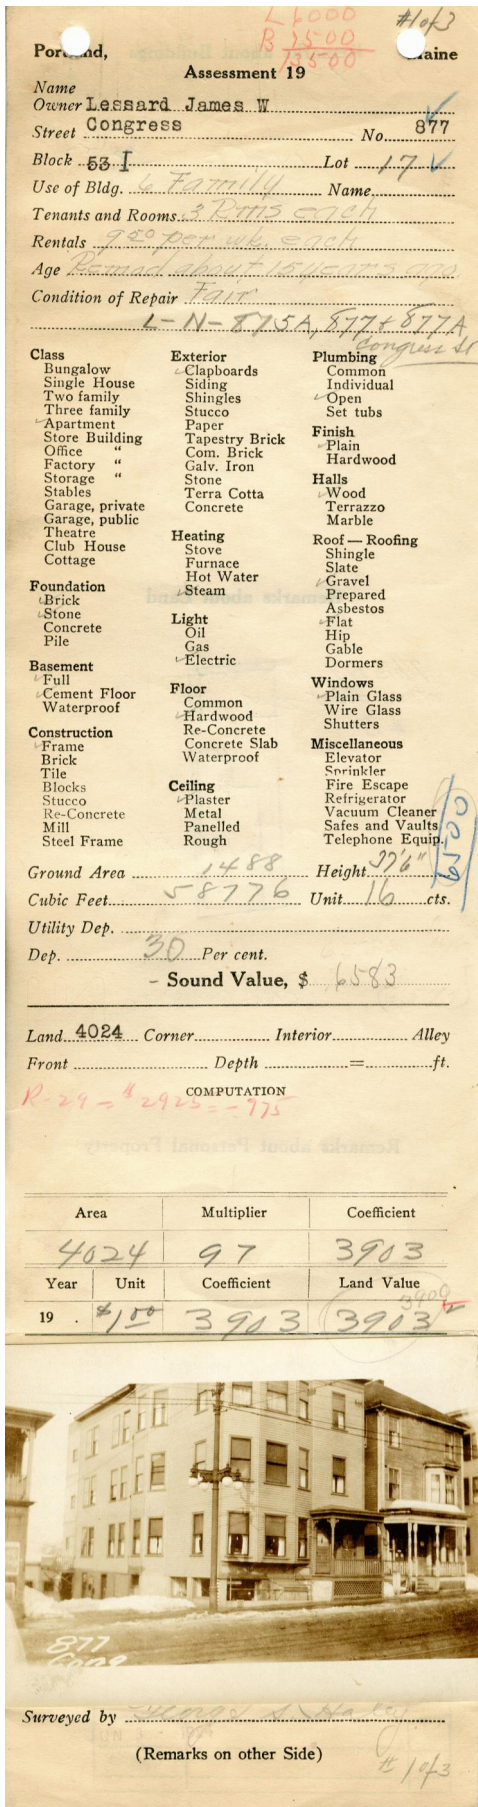 L 6000
B 7500
13500
#1 of 3
Portland, Maine
Assessment 19
Name
Owner Lessard James W
Street Congress No. 877
Block 53 I Lot 17
Use of Bldg. 6 Family Name
Tenants and Rooms 3 Rms each
Rentals 9 50 per wk. each
Age Remod about 15 years ago
Condition of Repair Fair
L-N-875A, 877 + 877A
Congress St
Class
Bungalow
Single House
Two family
Three family
Apartment
Store Building
Office "
Factory "
Storage "
Stables
Garage, private
Garage, public
Theatre
Club House
Cottage
Foundation
Brick
Stone
Concrete
Pile
Basement
Full
Cement Floor
Waterproof
Construction
Frame
Brick
Tile
Blocks
Stucco
Re-Concrete
Mill
Steel Frame
Exterior
Clapboards
Siding
Shingles
Stucco
Paper
Tapestry Brick
Com. Brick
Galv. Iron
Stone
Terra Cotta
Concrete
Heating
Stove
Furnace
Hot Water
Steam
Light
Oil
Gas
Electric
Floor
Common
Hardwood
Re-Concrete
Concrete Slab
Waterproof
Ceiling
Plaster
Metal
Panelled
Rough
Plumbing
Common
Individual
Open
Set tubs
Finish
Plain
Hardwood
Halls
Wood
Terrazzo
Marble
Roof — Roofing
Shingle
Slate
Gravel
Prepared
Asbestos
Flat
Hip
Gable
Dormers
Windows
Plain Glass
Wire Glass
Shutters
Miscellaneous
Elevator
Sprinkler
Fire Escape
Refrigerator
Vacuum Cleaner
Safes and Vaults
Telephone Equip.
Ground Area 1488 Height 37'6"
Cubic Feet 58776 Unit 16 cts.
Utility Dep.
Dep. 30 Per cent.
- Sound Value, $ 6583
Land 4024 Corner Interior Alley
Front Depth = ft.
COMPUTATION
R-29 = $2925 = -975
Remarks about Personal Property
Area Multiplier Coefficient
4024 97 3903
Year Unit Coefficient Land Value
3900
19 . $1.00 3903 3903
877
Surveyed by George S.
(Remarks on other Side)
# 1 of 3